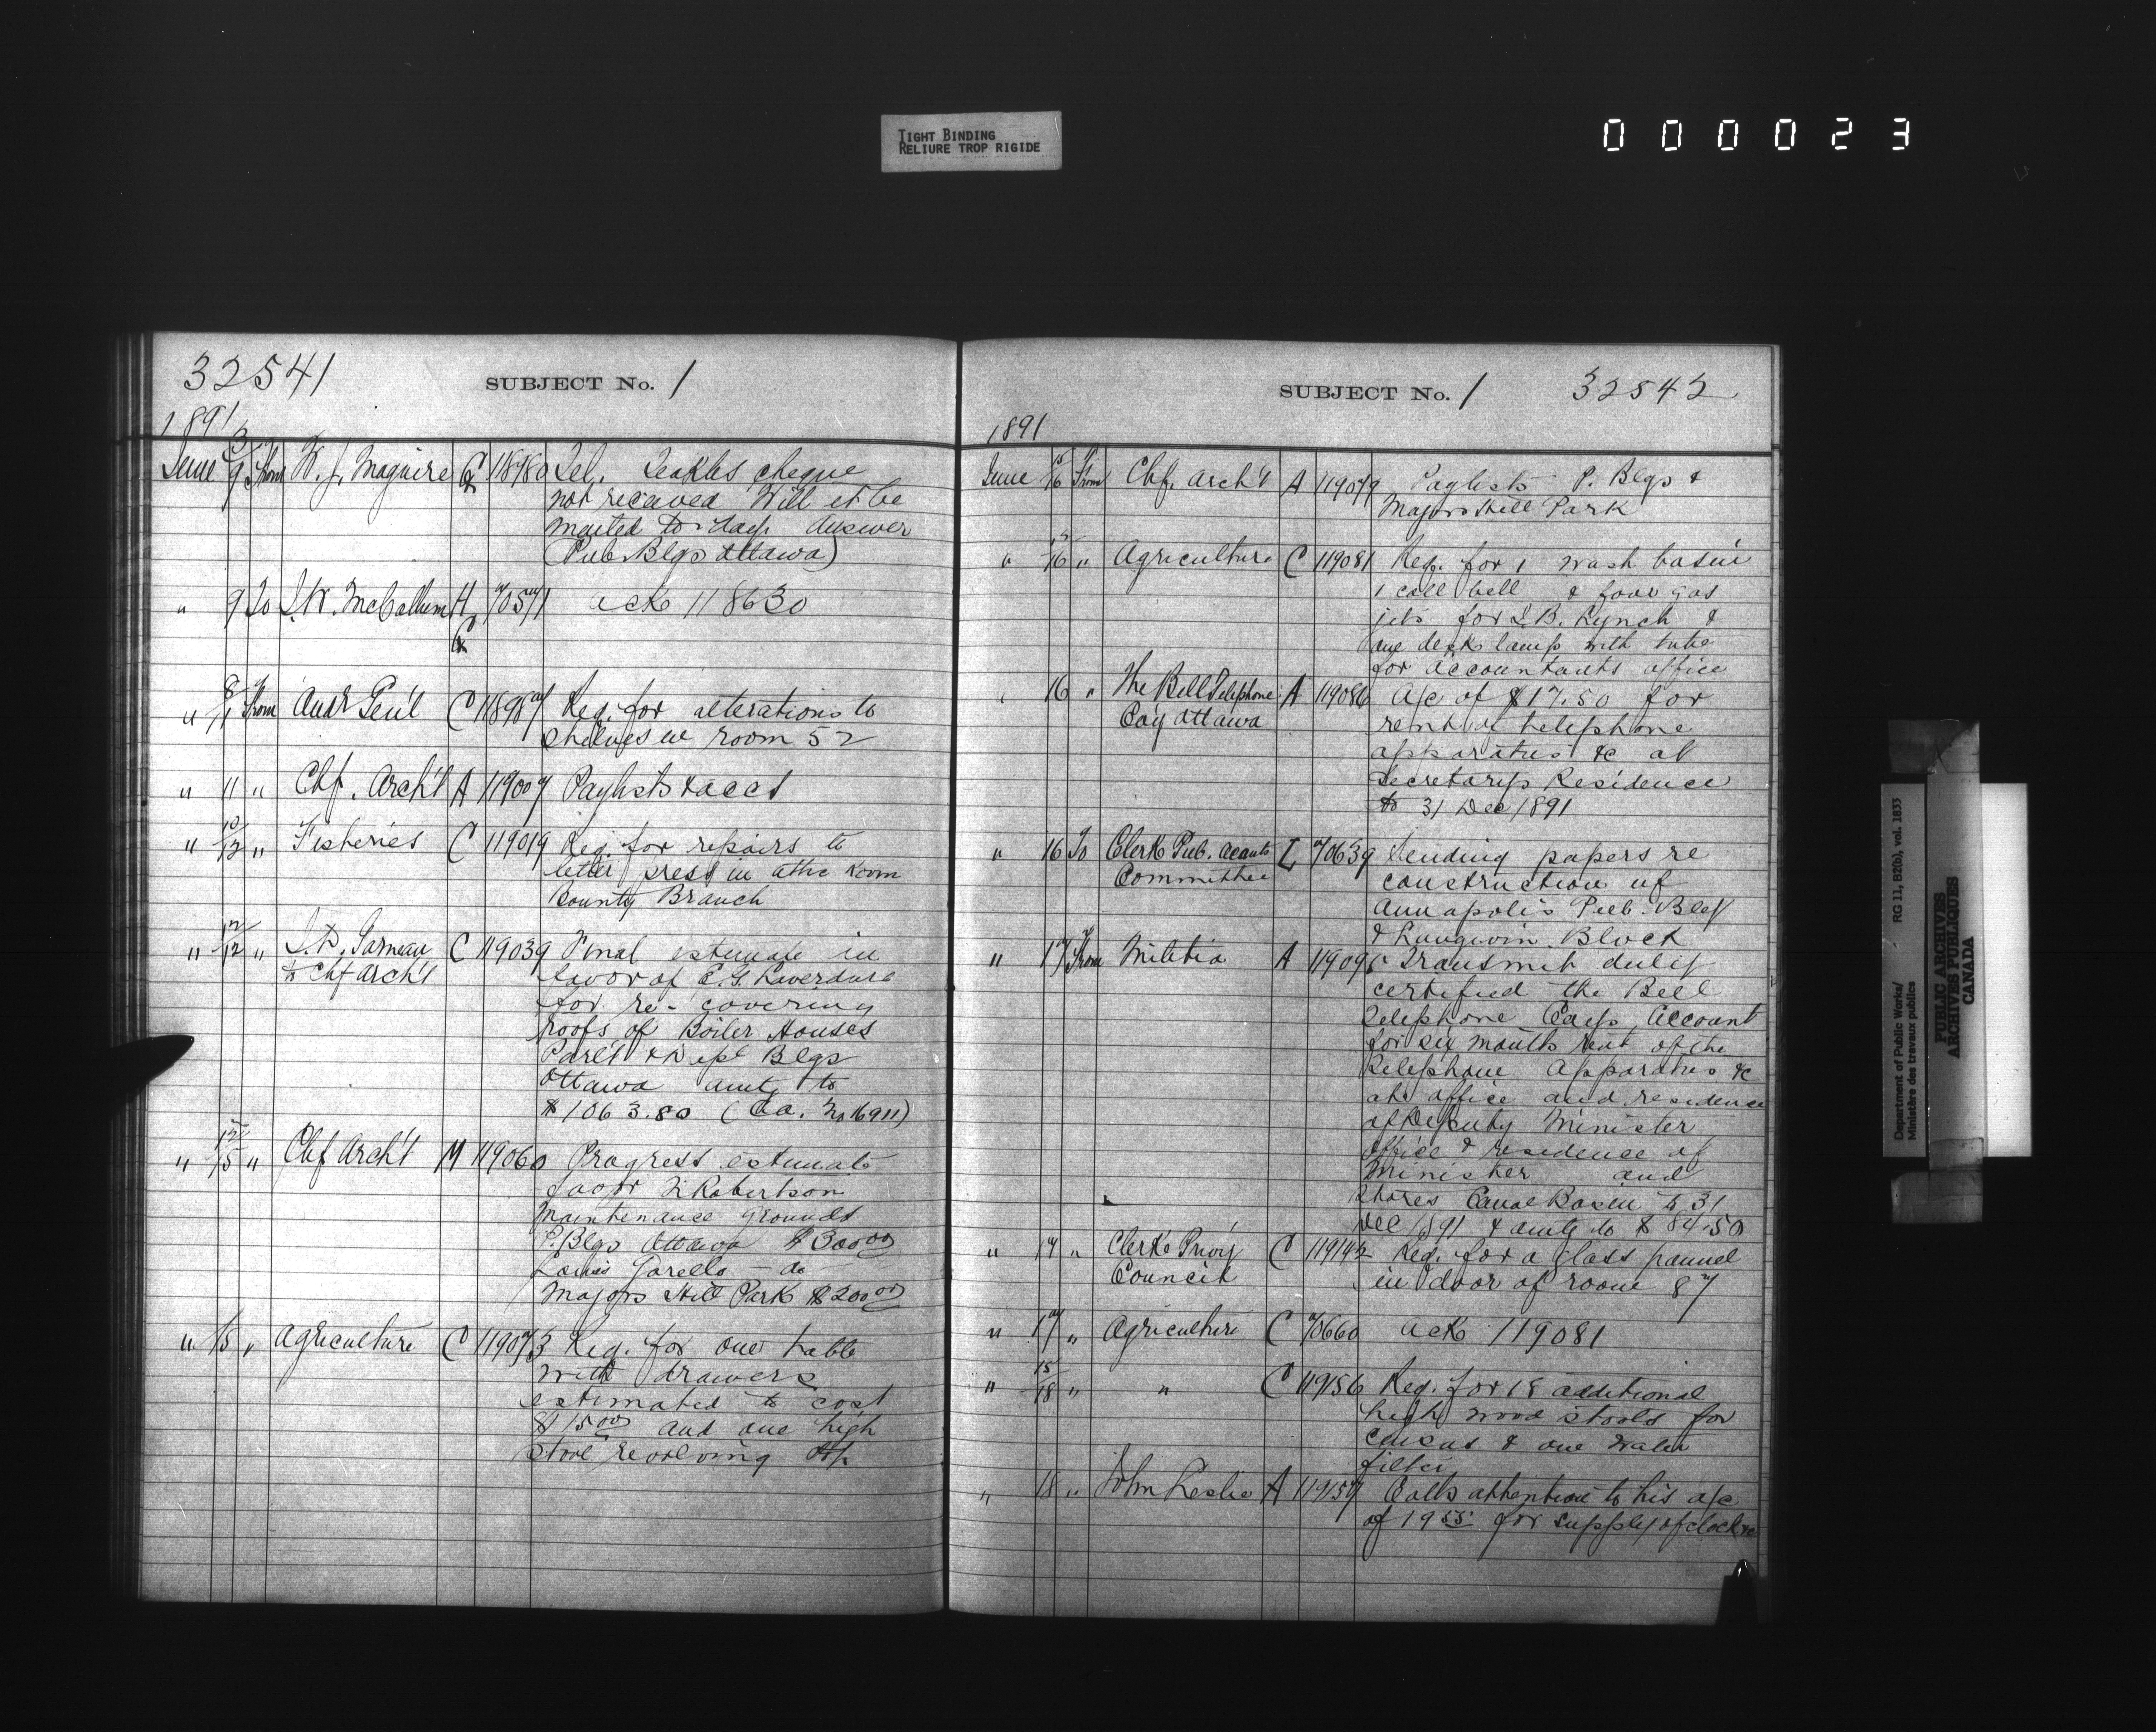 TIGHT BINDING
RELIURE TROP RIGIDE
000023
32541
SUBJECT No. 1
1891
June 9 From W. J. Maguire 118980 Tel. Leakles cheque
not received Will it be
mailed to-day. Answer
(Pub. Blgs Ottawa)
" 9 To J. W. McCallum H 70571 ack 118630
" 8/11 From Audr Gen'l C 118987 Req. for alterations to
shelves in room 52
" 11 " Chf. Arch't A 119007 Paylists & accts
" 10/12 " Fisheries C 119019 Req. for repairs to
letter press in attic room
Bounty Branch
" 12/12 " J. D. Garneau C 119039 Final estimate in
to Chf Arch't favor of E. G. Laverdure
for re-covering
roofs of Boiler Houses
Parl't & Dept Blgs
Ottawa amtg to
$1063.80 (Ca. No 16911)
" 15/15 " Chf Arch't M 119060 Progress estimate
favor N. Robertson
Maintenance grounds
P. Blgs Ottawa $300.00
Louis Garello - do
Majors Hill Park $200.00
" 15 " Agriculture C 119073 Req. for one table
with drawers
estimated to cost
$15.00 and one high
stool revolving top
SUBJECT No. 1 32542
1891
June 15/16 From Chf. Arch't A 119079 Paylists P. Blgs &
Majors Hill Park
" 15/16 " Agriculture C 119081 Req. for 1 wash basin
1 call bell & four gas
jets for J. B. Lynch &
one desk lamp with tube
for Accountants office
" 16 " The Bell Telephone A 119086 A/c of $17.50 for
Coy Ottawa rent of telephone
apparatus &c at
Secretarys Residence
to 31 Dec 1891
" 16 To Clerk Pub. Acouts L 70639 Sending papers re
Committee construction of
Annapolis Pub. Blg
& Langevin Block
" 17 From Militia A 119095 Transmit duly
certified the Bell
Telephone Coys Account
for six months rent of the
Telephone Apparatus &c
at office and residence
of Deputy Minister
Office & residence of
Minister and
Stores Canal Basin to 31
Dec 1891 & amtg to $84.50
" 17 " Clerk Privy C 119142 Req. for a glass pannel
Council in door of room 87
" 17 " Agriculture C 70660 ack 119081
" 15/18 " " C 119156 Req. for 18 additional
high wood stools for
census & one water
filter
" 18 " John Leslie A 119157 Calls attention to his a/c
of 19.55 for supply of clock &c
Department of Public Works/ RG 11, B2(b), vol. 1833
Ministère des travaux publics
PUBLIC ARCHIVES
ARCHIVES PUBLIQUES
CANADA